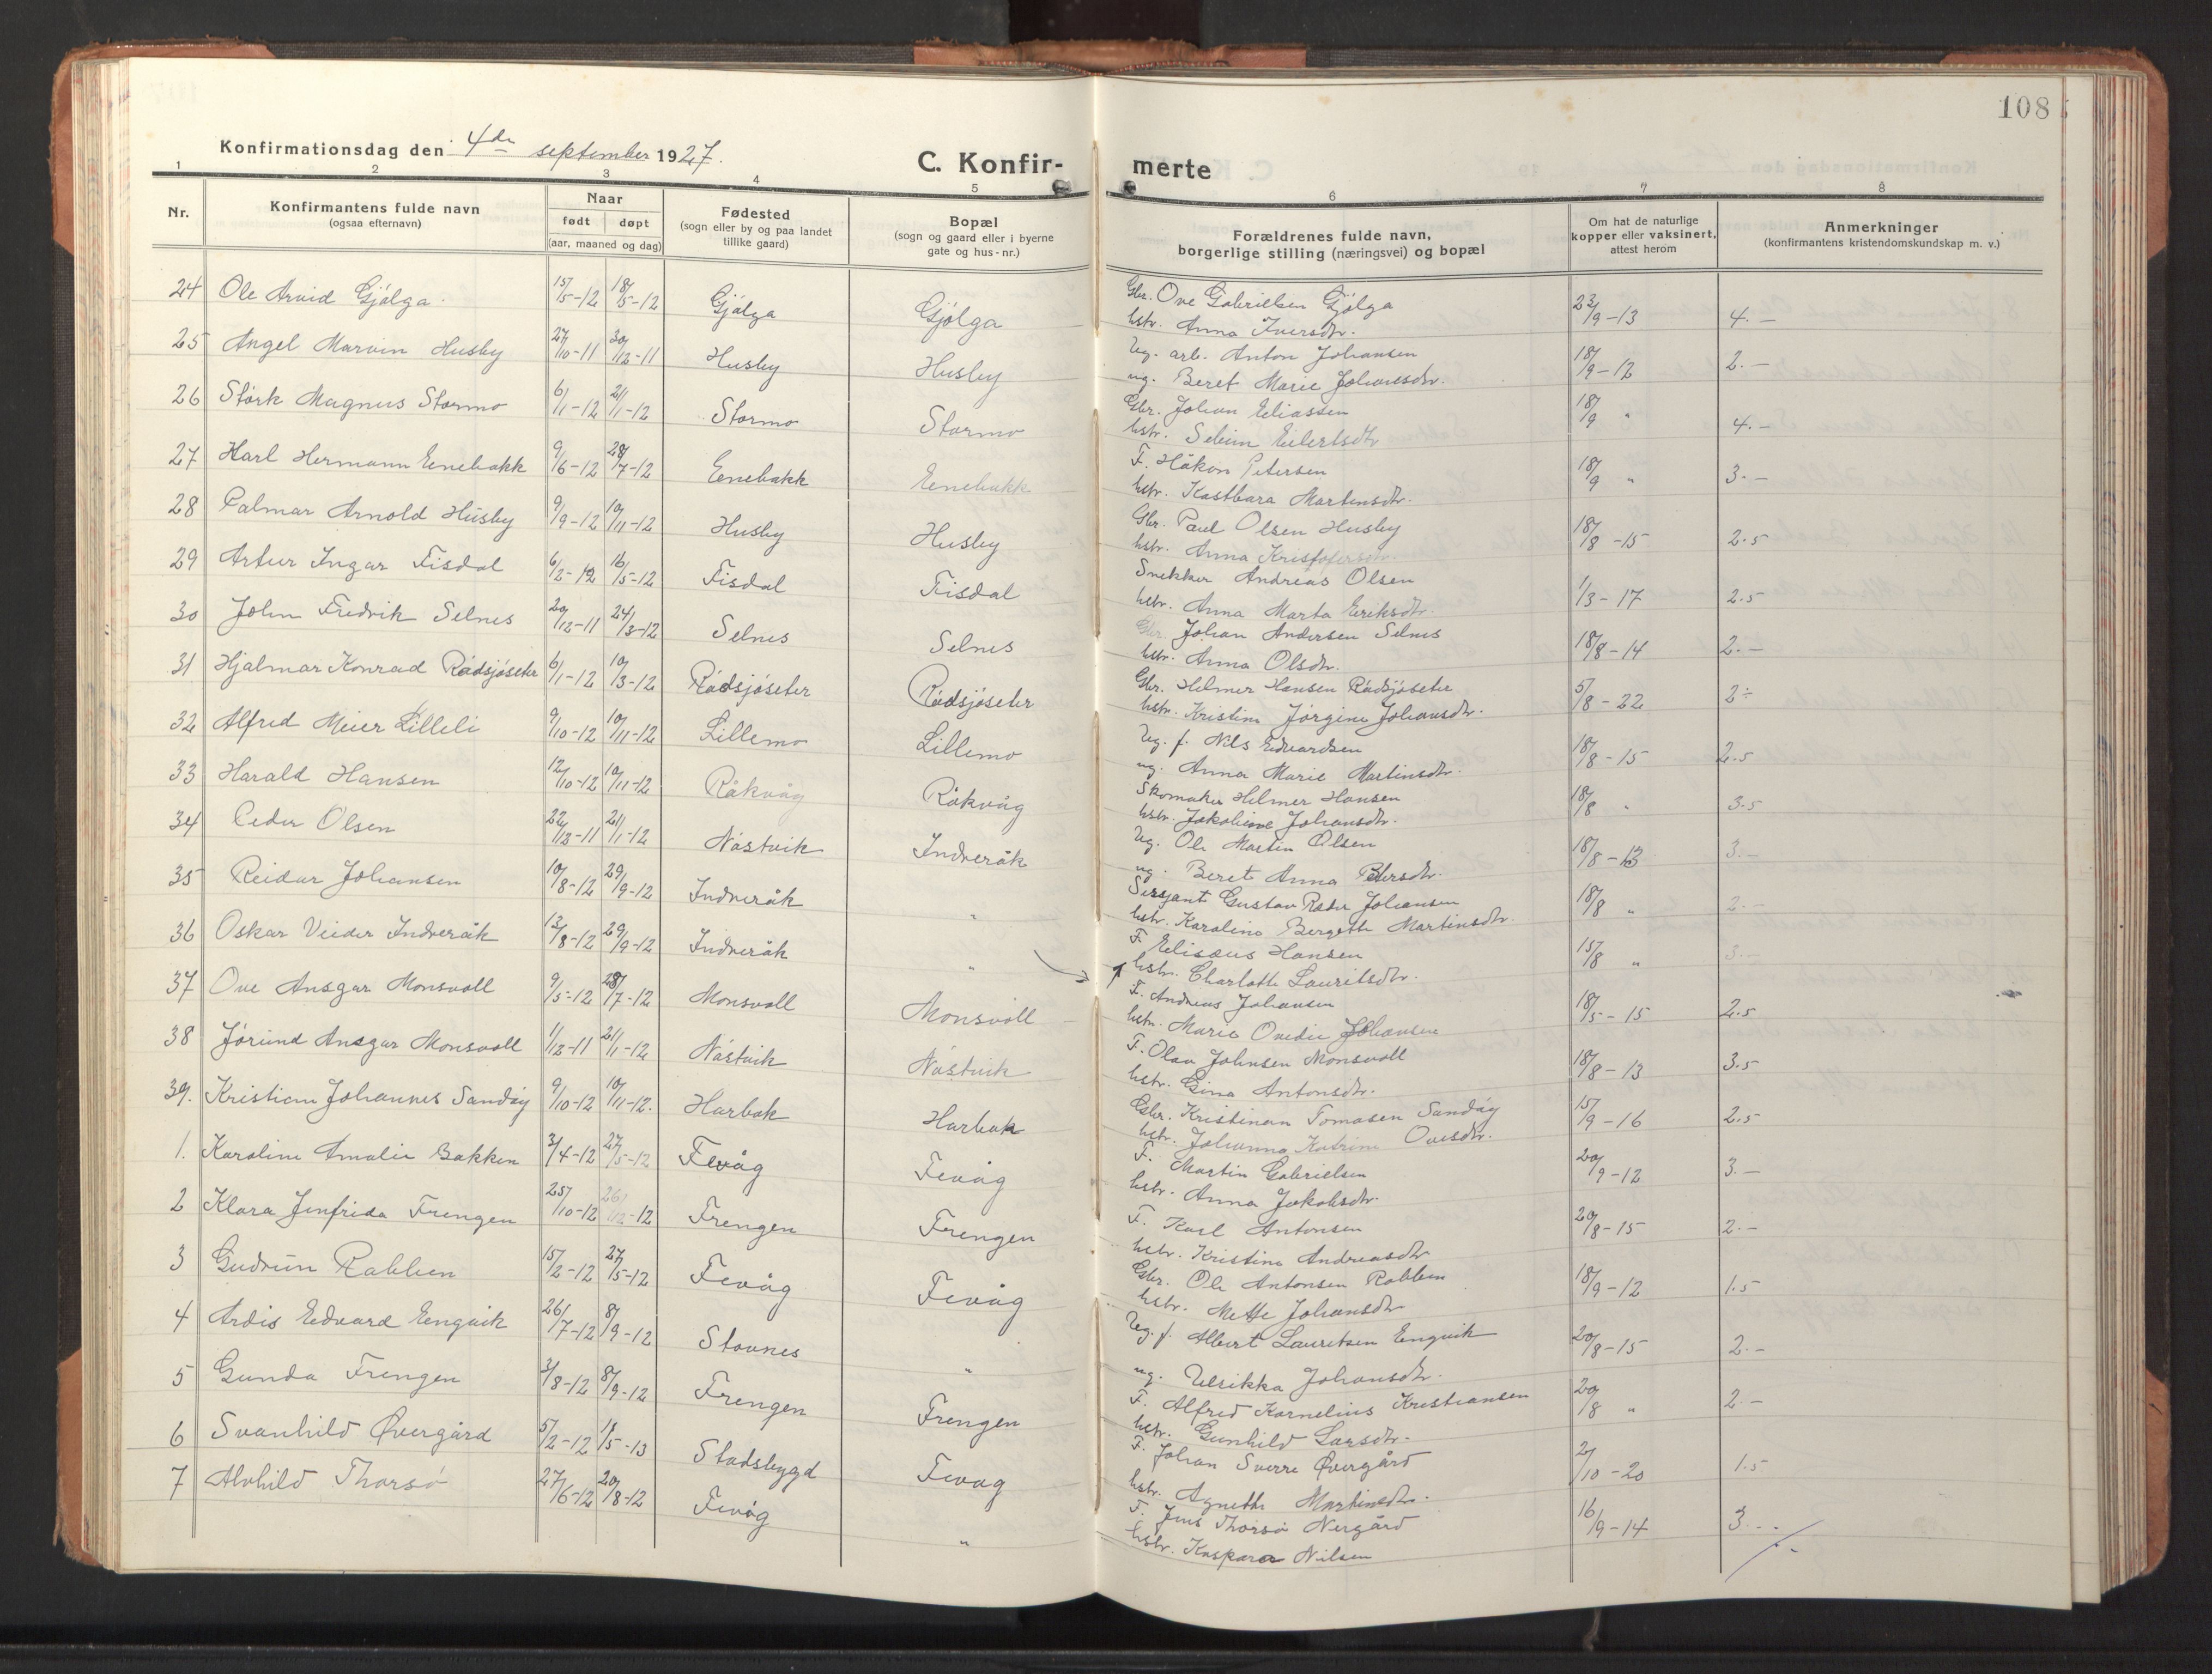 108
Konfirmationsdag den 4de september 1927.
C. Konfir-
merte
1 2 3 4 5 6 7 8
Nr.
Konfirmantens fulde navn
(ogsaa efternavn)
Naar
født døpt
(aar, maaned og dag)
Fødested
(sogn eller by og paa landet
tillike gaard)
Bopæl
(sogn og gaard eller i byerne
gate og hus-nr.)
Forældrenes fulde navn,
borgerlige stilling (næringsvei) og bopæl
Om hat de naturlige
kopper eller vaksinert,
attest herom
Anmerkninger
(konfirmantens kristendomskundskap m. v.)
24 Ole Arvid Gjølga 15/5-12 18/5-12 Gjølga Gjølga Gbr. Ove Gabrielsen Gjølga 23/9-13 4.-
hstr. Anna Iversdtr.
25 Angel Marvin Husby 27/10-11 30/12-11 Husby Husby Ug. arb. Anton Johansen 18/9-12 2.-
ug. Beret Marie Johansdtr.
26 Størk Magnus Stormo 6/1-12 21/1-12 Stormo Stormo Gbr. Johan Eliassen 18/9 " 4.-
hstr. Eilertsdtr
27 Karl Hermann Enebakk 9/6-12 28/7-12 Enebakk Enebakk F. Håkon Petersen 18/9 " 3.-
hstr. Kastbara Martinsdtr.
28 Palmar Arnold Husby 9/9-12 10/11-12 Husby Husby Gbr. Paul Olsen Husby 18/8-15 2.5
hstr. Anna Kristofersdtr.
29 Artur Ingar Fisdal 6/2-12 16/5-12 Fisdal Fisdal Snekker Andreas Olsen 1/3-17 2.5
hstr. Anna Marta Eriksdtr.
30 John Fredrik Selnes 29/12-11 24/3-12 Selnes Selnes Gbr. Johan Andersen Selnes 18/8-14 2.-
hstr. Anna Olsdtr.
31 Hjalmar Konrad Rødsjøseter 6/1-12 10/3-12 Rødsjøseter Rødsjøseter Gbr. Helmer Hansen Rødsjøseter 5/8-22 2÷
hstr. Kristine Jørgine Johansdtr.
32 Alfred Meier Lilleli 9/10-12 10/11-12 Lillemo Lillemo Ug. f. Nils Edvardsen 18/8-15 2.5
ug. Anna Marie Martinsdtr.
33 Harald Hansen 12/10-12 10/11-12 Råkvåg Råkvåg Skomaker Helmer Hansen 18/8 " 3.5
hstr. Jakobine Johansdtr.
34 Peder Olsen 22/12-11 21/1-12 Nøstvik Indreråk Ug. Ole Martin Olsen 18/8-13 3.-
ug. Beret Anna Petersdtr.
35 Reidar Johansen 10/8-12 29/9-12 Indreråk " Sersjant Gustav Peder Johansen 18/8 " 2.-
hstr. Karoline Bergethe Martinsdtr.
36 Oskar Veider Indreråk 13/8-12 29/9-12 Indreråk " F. Eliseus Hansen 15/8 " 3.-
hstr. Charlotte Lauritsdtr.
37 Ove Ansgar Monsvoll 9/5-12 28/7-12 Monsvoll Monsvoll F. Andreas Johansen 18/5-15 2.5
hstr. Marie Ovedie Johansen
38 Jørund Ansgar Monsvoll 1/12-11 21/1-12 Nøstvik Nøstvik F. Olav Johnsen Monsvoll 18/8-13 3.5
hstr. Gina Antonsdtr.
39. Kristian Johannes Sandøy 9/10-12 10/11-12. Harbak Harbak Gbr. Kristinan Tomasen Sandøy 15/9-16 2.5
hstr. Johanna Katrine Ovesdtr.
1. Karoline Amalie Bakken 3/4-12 27/5-12 Fevåg Fevåg F. Martin Gabrielsen 20/9-12 3.-
hstr. Anna Jakobsdtr.
2 Klara Jenfrida Frengen 25/10-12 26/12-12 Frengen Frengen F. Karl Antonsen 20/8-15 2.-
hstr. Kristine Andreasdtr
3 Gudrun Rabben 15/2-12 27/5-12 Fevåg Fevåg Gbr. Ole Antonsen Rabben 18/9-12 1.5
hstr. Mette Johansdtr
4 Ardis Edvard Engvik 26/7-12 8/9-12 Stovnes " Ug. f. Albert Lauritsen Engvik 20/8-15 2.-
ug. Ulrikka Johansdtr.
5 Gunda Frengen 3/8-12 8/9-12 Frengen Frengen F. Alfred Kornelius Kristiansen 20/8 " 2.-
hstr. Gunhild Larsdtr.
6 Svanhild Øvergård 5/2-12 1/5-13 Stadsbygd Fevåg F. Johan Sverre Øvergård 2/10-20 1.5
hstr. Agnethe Martinsdtr.
7 Alvhild Thorsø 27/6-12 20/8-12 Fevåg " F. Jens Thorsø Nergård 16/9-14 3.-
hstr. Kaspara Nilsen